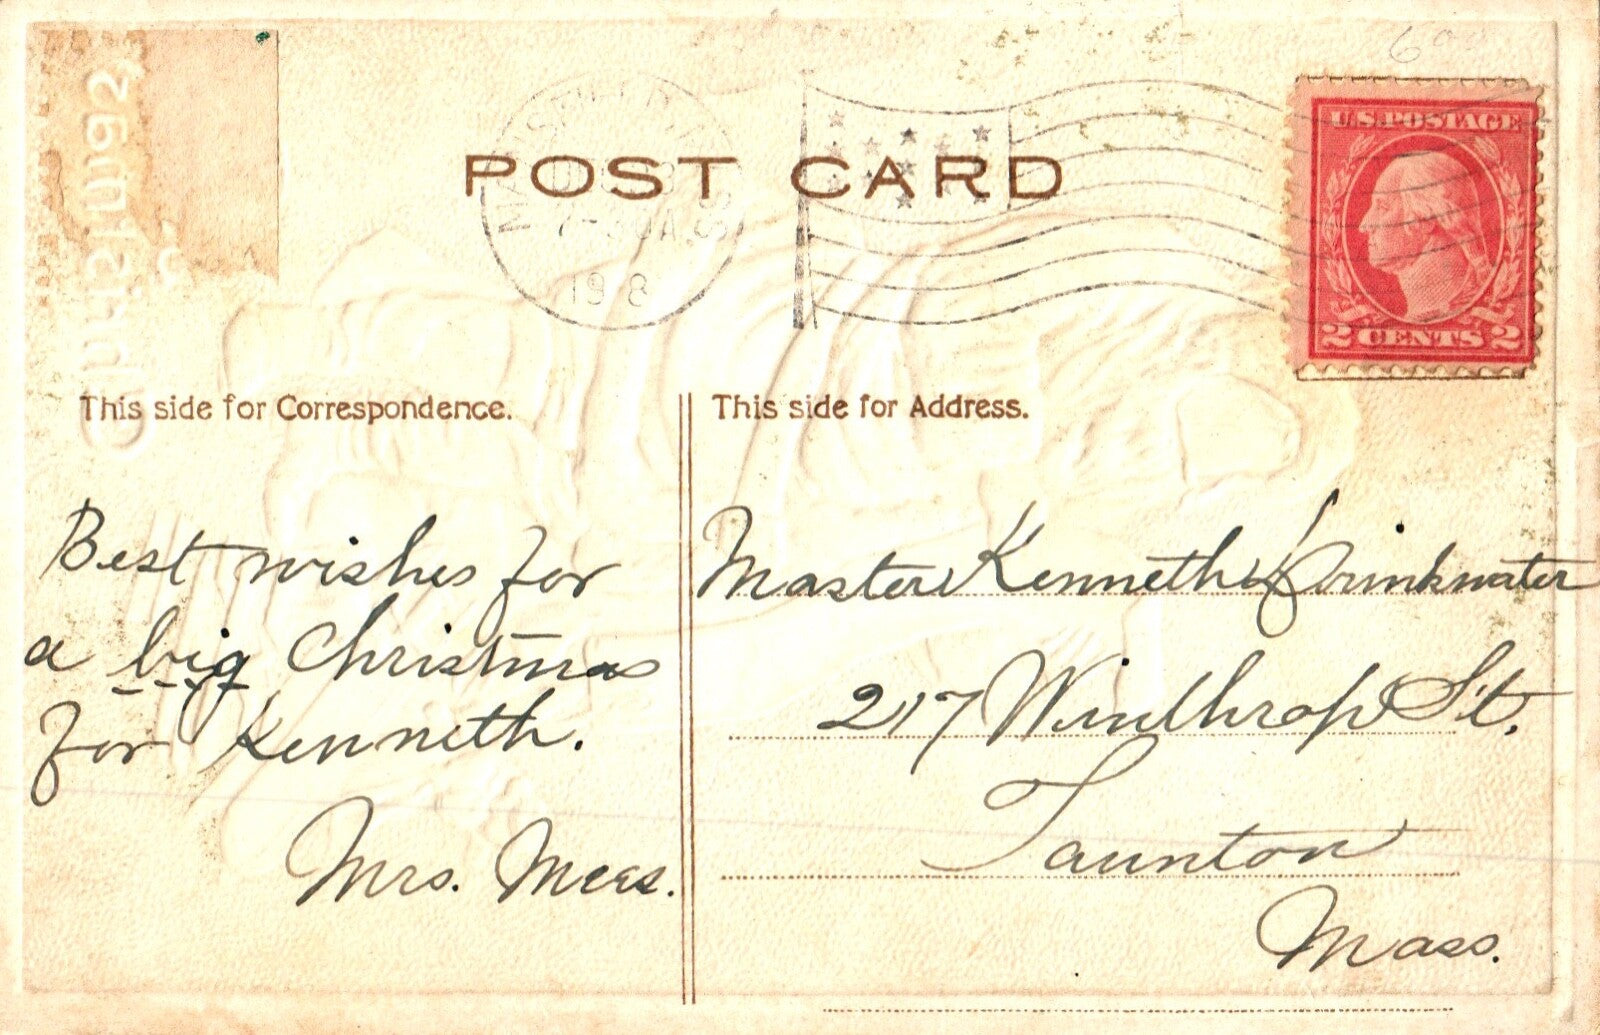 600
POST CARD
7-30 A
19 8
U.S. POSTAGE
2 CENTS 2
This side for Correspondence.
Best wishes for
a big Christmas
for Kenneth.
Mrs. Mees.
This side for Address.
Master Kenneth Drinkwater
217 Winthrop St.
Taunton
Mass.